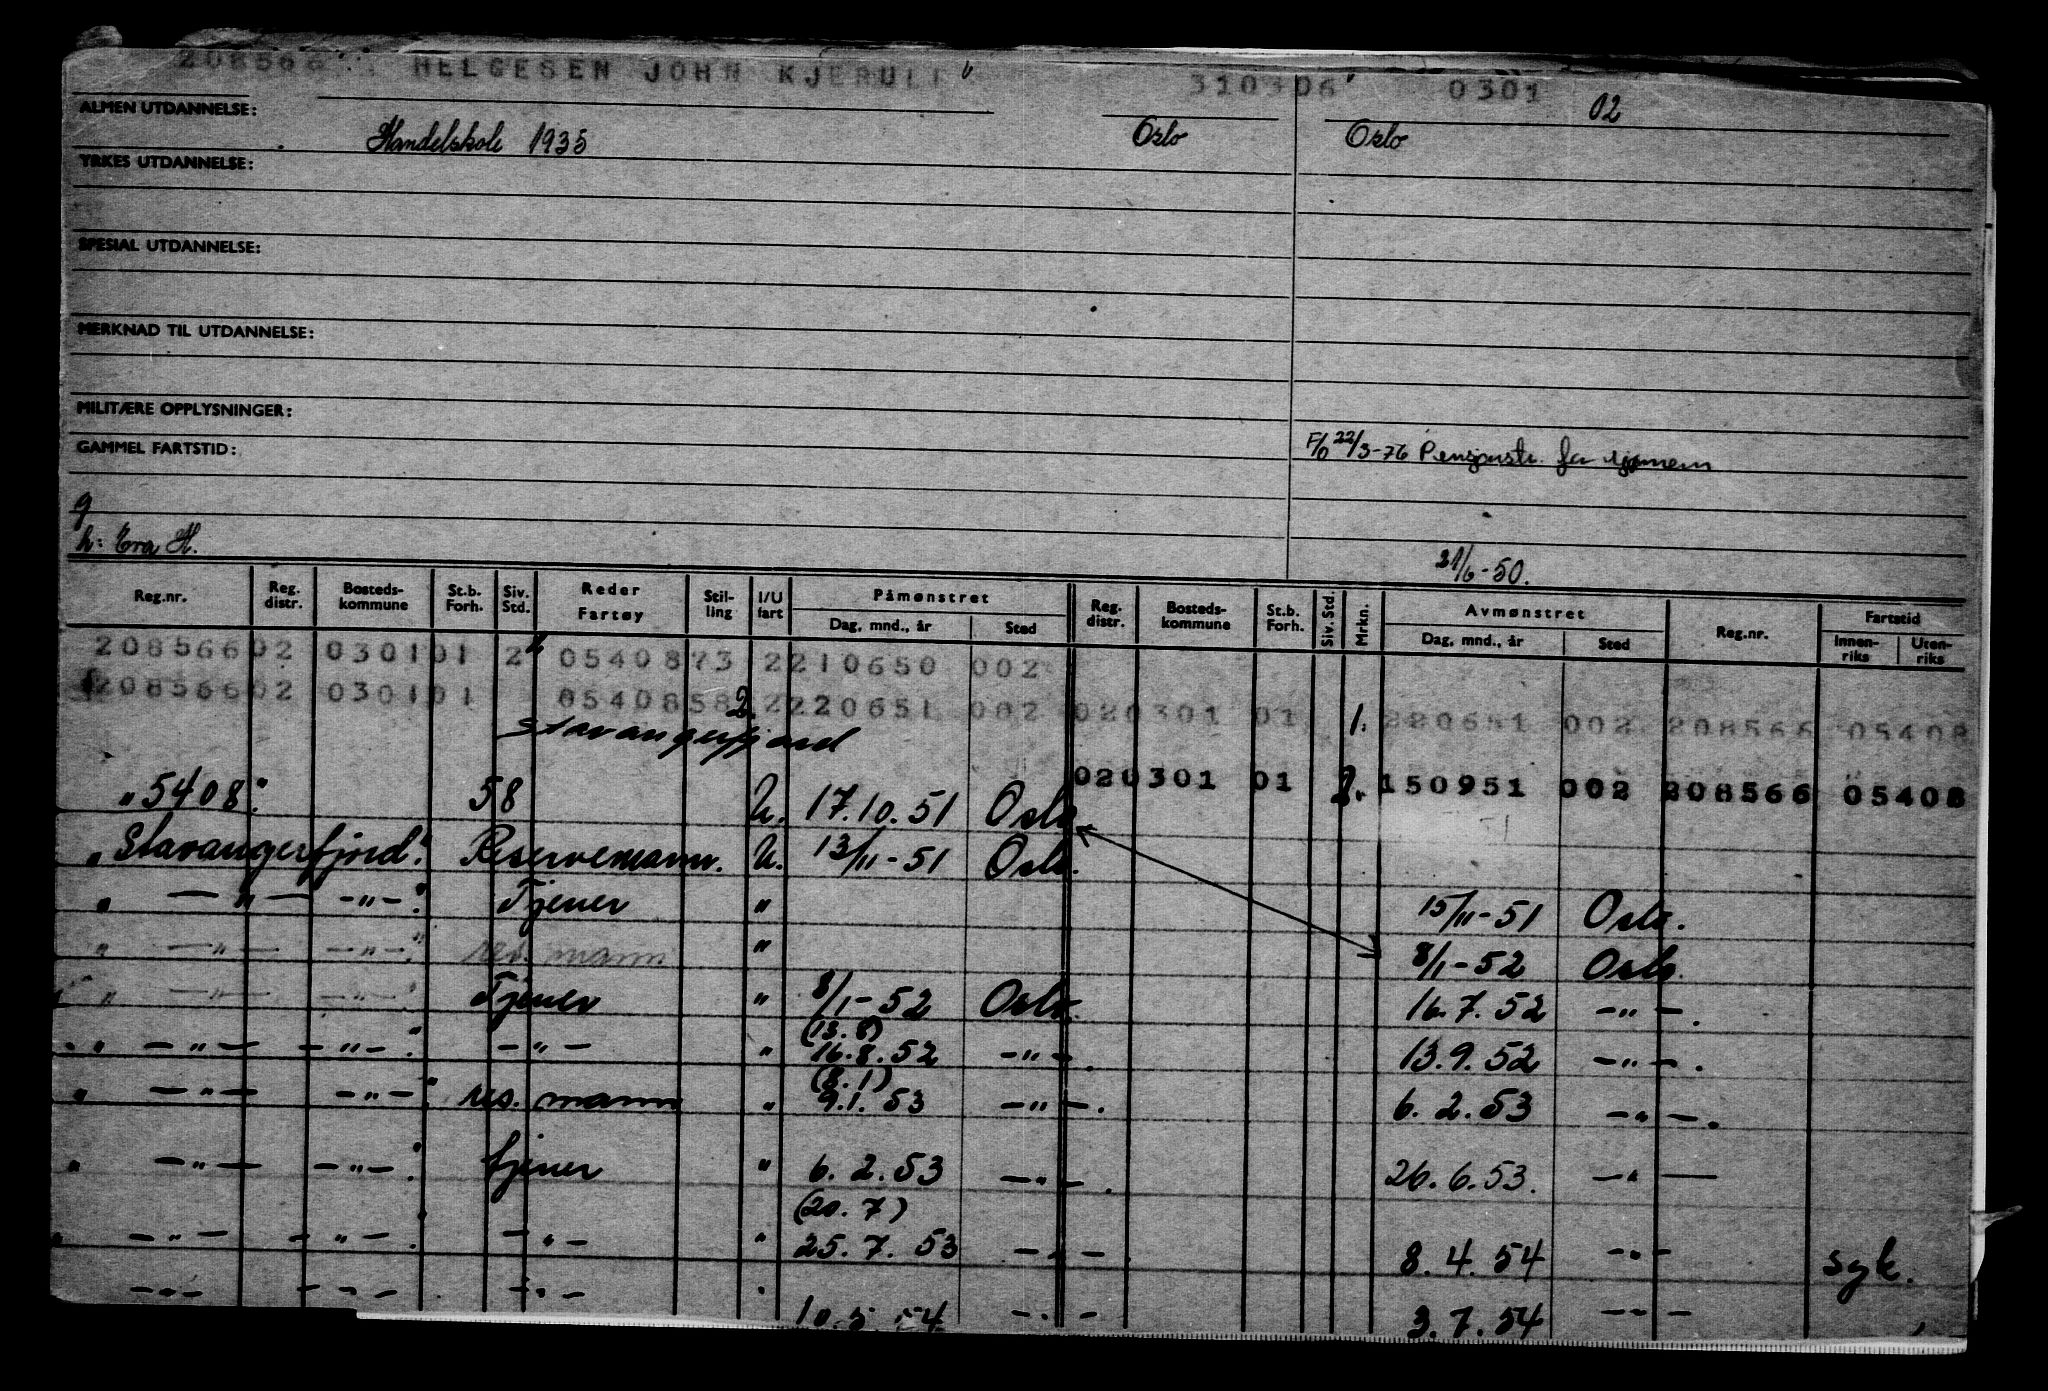 208566 HELGESEN JOHN KJERULF 310306 0301 02
ALMEN UTDANNELSE:
Handelskole 1935 Oslo Oslo
YRKES UTDANNELSE:
SPESIAL UTDANNELSE:
MERKNAD TIL UTDANNELSE:
MILITÆRE OPPLYSNINGER:
GAMMEL FARTSTID: F/O 22/3-76 Pensjonstr. for sjømenn
g
h: Eva H. 21/6-50.
Reg.nr. Reg. distr. Bosteds-kommune St.b. Forh. Siv. Std. Reder Fartøy Stil-ling I/U fart Påmønstret Dag, mnd., år Sted Reg. distr. Bosteds-kommune St.b. Forh. Siv. Std. Mrkn. Avmønstret Dag, mnd., år Sted Reg.nr. Fartstid Innen-riks Uten-riks
208566 02 0301 01 2 05408 73 2 210650 002
208566 02 0301 01 05408 58 2. 2 220651 002 02 0301 01 1. 220651 002 208566 05408
Stavangerfjord
02 0301 01 2. 150951 002 208566 05408
"5408". 58 U. 17.10.51 Oslo.
"Stavangerfjord". Reservemann. U. 13/11-51 Oslo.
" —"— -"-". Tjener " 15/11-51 Oslo.
" —"— -"-". res. mann " 8/1-52 Oslo.
" —"— -"-". Tjener " 8/1-52 Oslo. 16.7.52 -"-.
(13.8)
" -"- -"-". -"- " 16.8.52 -"-. 13.9.52 -"-.
(8.1)
" -"- -"-". res. mann " 9.1.53 -"-. 6.2.53 -"-.
" -"- -"-". tjener " 6.2.53 -"-. 26.6.53. -"-
(20.7)
" -"- -"-. -"- " 25.7.53 -"-. 8.4.54 -"- syk.
-"- -"- -"- " 10.5.54 -"- 3.7.54 -"-